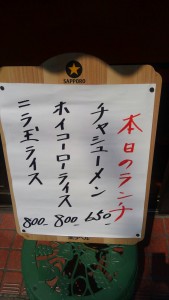 SAPPORO
本日のランチ
チャシューメン 650-
ホイコーローライス 800-
ニラ玉ライス 800-